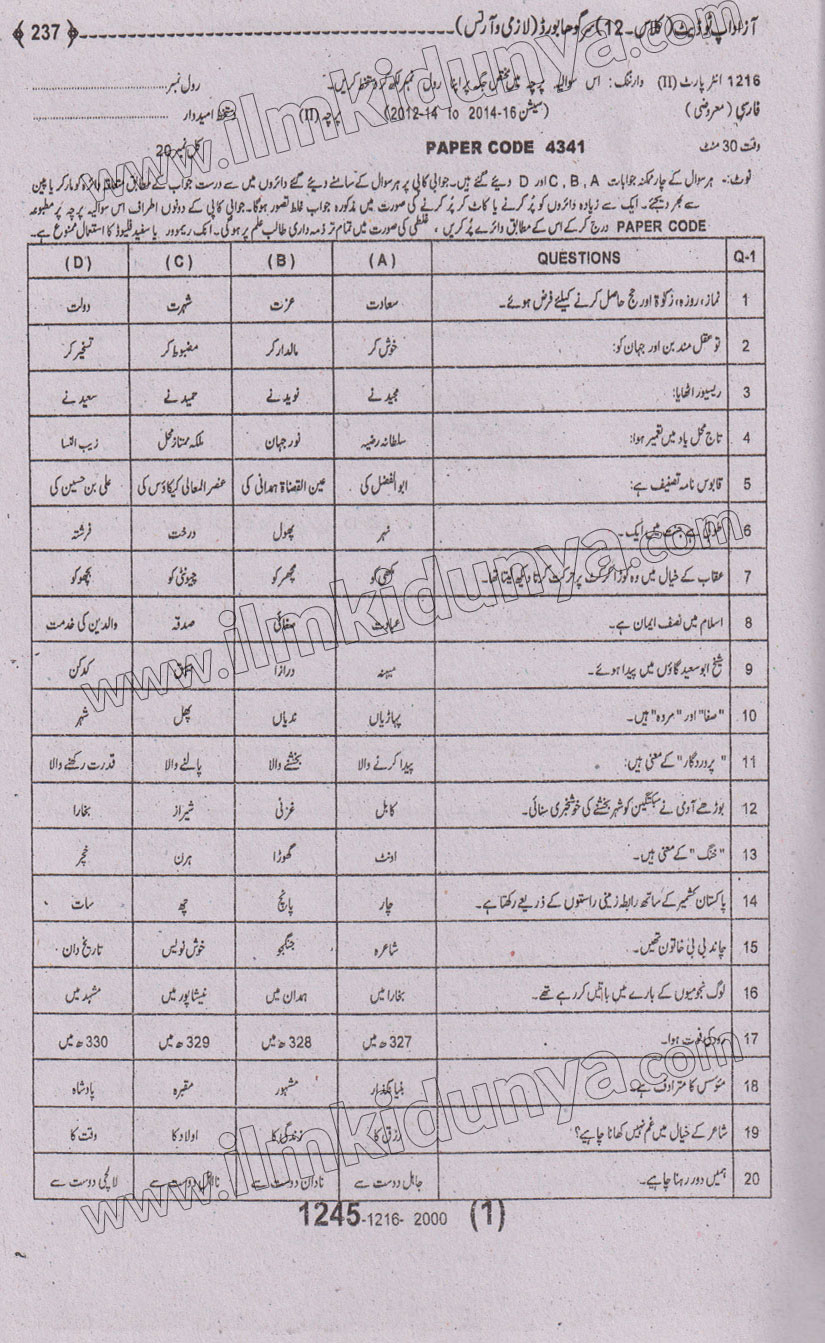 آزاد اپ ٹو ڈیٹ (کلاس۔12) سرگودھا بورڈ (لازمی و آرٹس) ﴿237﴾
1216 انٹر پارٹ (II) وارننگ: اس سوالیہ پرچہ میں مختص جگہ پر اپنا رول نمبر لکھ کر دستخط کریں۔ رول نمبر
فارسی (معروضی) (سیشن 16-2014 to 14-2012) پرچہ (II) دستخط امیدوار
وقت 30 منٹ PAPER CODE 4341 کل نمبر 20
نوٹ:۔ ہر سوال کے چار ممکنہ جوابات C , B , A اور D دیئے گئے ہیں۔ جوابی کاپی پر ہر سوال کے سامنے دیئے گئے دائروں میں سے درست جواب کے مطابق متعلقہ دائرہ کو مارکر یا پین
سے بھر دیجئے۔ ایک سے زیادہ دائروں کو پُر کرنے یا کاٹ کر پُر کرنے کی صورت میں مذکورہ جواب غلط تصور ہوگا۔ جوابی کاپی کے دونوں اطراف اس سوالیہ پرچہ پر مطبوعہ
PAPER CODE درج کر کے اس کے مطابق دائرے پُر کریں، غلطی کی صورت میں تمام تر ذمہ داری طالب علم پر ہوگی۔ انک ریموور یا سفید فلیوڈ کا استعمال ممنوع ہے۔
Q-1 QUESTIONS (A) (B) (C) (D)
1 نماز، روزہ، زکوٰۃ اور حج حاصل کرنے کیلئے فرض ہوئے۔ سعادت عزت شہرت دولت
2 تو عقل مند بن اور جہان کو: خوش کر مالدار کر مضبوط کر تسخیر کر
3 ریسیور اٹھایا: مجید نے نوید نے حمید نے سعید نے
4 تاج محل یاد میں تعمیر ہوا: سلطانہ رضیہ نور جہان ملکہ ممتاز محل زیب النسا
5 قابوس نامہ تصنیف ہے: ابوالفضل کی عین القضاۃ ہمدانی کی عنصر المعالی کیکاؤس کی علی بن حسین کی
6 طوبیٰ ہے جنت میں ایک۔ نہر پھول درخت فرشتہ
7 عقاب کے خیال میں وہ کوڑا کرکٹ پر حرکت کرتا دیکھ لیتا تھا۔ مکھی کو مچھر کو چیونٹی کو بچھو کو
8 اسلام میں نصف ایمان ہے۔ عبادت صفائی صدقہ والدین کی خدمت
9 شیخ ابو سعید گاؤں میں پیدا ہوئے۔ میہنہ درازا کدکن
10 "صفا" اور "مروہ" ہیں۔ پہاڑیاں ندیاں پھل شہر
11 "پروردگار" کے معنی ہیں: پیدا کرنے والا بخشنے والا پالنے والا قدرت رکھنے والا
12 بوڑھے آدمی نے سبکتگین کو شہر بخشنے کی خوشخبری سنائی۔ کابل غزنی شیراز بخارا
13 "خنگ" کے معنی ہیں۔ اونٹ گھوڑا ہرن خچر
14 پاکستان کشمیر کے ساتھ رابطہ زمینی راستوں کے ذریعے رکھتا ہے۔ چار پانچ چھ سات
15 چاند بی بی خاتون تھیں۔ شاعرہ جنگجو خوش نویس تاریخ دان
16 لوگ نجومیوں کے بارے میں باتیں کر رہے تھے۔ بخارا میں ہمدان میں نیشاپور میں مشہد میں
17 رودکی فوت ہوا۔ 327ھ میں 328ھ میں 329ھ میں 330ھ میں
18 مؤسس کا مترادف ہے۔ بنیانگذار مشہور مقبرہ پادشاہ
19 شاعر کے خیال میں غم نہیں کھانا چاہیے؟ رزق کا زندگی کا اولاد کا وقت کا
20 ہمیں دور رہنا چاہیے۔ جاہل دوست سے نادان دوست سے نااہل دوست سے لالچی دوست سے
1245-1216- 2000 (1)
www.ilmkidunya.com
www.ilmkidunya.com
www.ilmkidunya.com